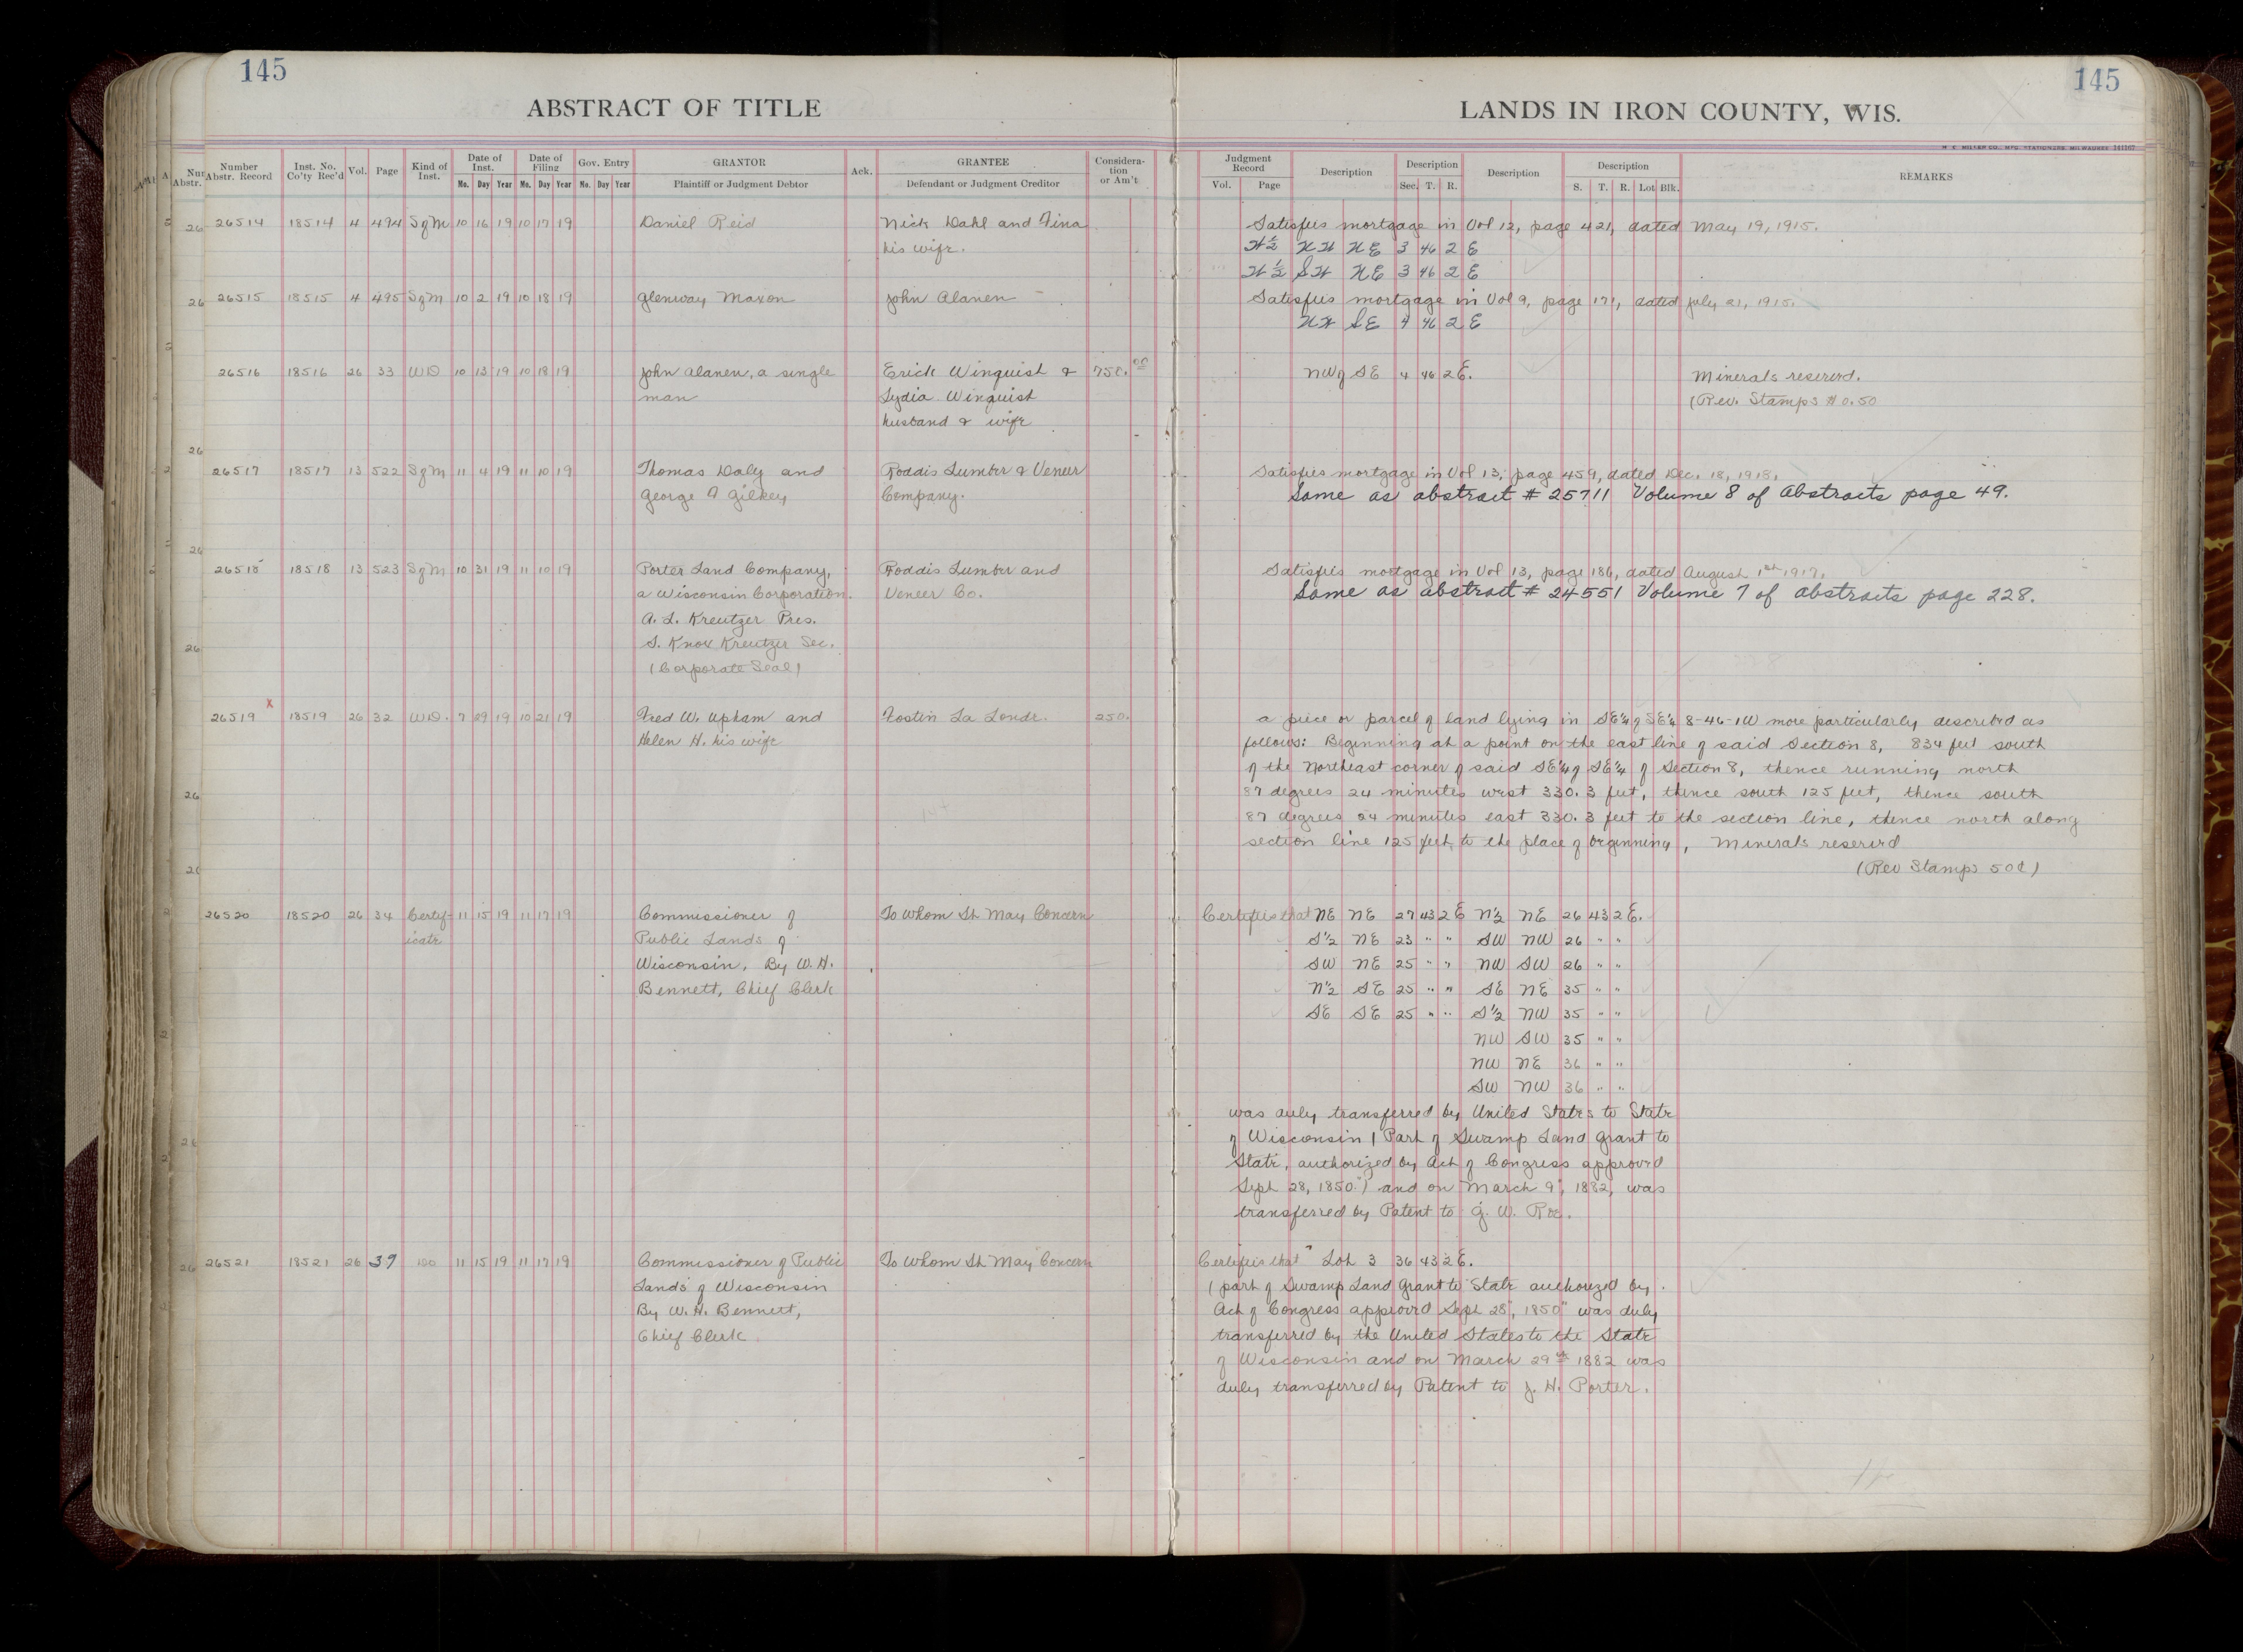 145
145
ABSTRACT OF TITLE
LANDS IN IRON COUNTY, WIS.
Number Abstr. Record
Inst. No. Co'ty Rec'd
Vol.
Page
Kind of Inst.
Date of Inst.
Mo. Day Year
Date of Filing
Mo. Day Year
Gov. Entry
Mo. Day Year
GRANTOR
Plaintiff or Judgment Debtor
Ack.
GRANTEE
Defendant or Judgment Creditor
Considera-tion or Am't
Judgment Record
Vol. Page
Description
Description
Sec. T. R.
Description
Description
S. T. R. Lot Blk.
REMARKS
26514 18514 4 494 SgM 10 16 19 10 17 19 Daniel Reid Nick Dahl and Fina Satisfies mortgage in Vol 12, page 421, dated May 19, 1915.
his wife. W½ NW NE 3 46 2 E
W½ SW NE 3 46 2 E
26515 18515 4 495 SgM 10 2 19 10 18 19 Glenway Maxon John Alanen Satisfies mortgage in Vol 9, page 171, dated July 21, 1915.
NW SE 4 46 2 E
26516 18516 26 33 WD 10 13 19 10 18 19 John Alanen, a single Erick Winquist & 750.00 NW of SE 4 46 2 E. Minerals reserved.
man Lydia Winquist (Rev. Stamps $0.50
husband & wife
26517 18517 13 522 SgM 11 4 19 11 10 19 Thomas Daly and Roddis Lumber & Veneer Satisfies mortgage in Vol 13, page 459, dated Dec. 18, 1918.
George A Gilkey Company. Same as abstract # 25711 Volume 8 of Abstracts page 49.
26518 18518 13 523 SgM 10 31 19 11 10 19 Porter Land Company, Roddis Lumber and Satisfies mortgage in Vol 13, page 186, dated August 1st 1917.
a Wisconsin Corporation. Veneer Co. Same as abstract # 24551 Volume 7 of abstracts page 228.
A. L. Kreutzer Pres.
S. Knox Kreutzer Sec.
(Corporate Seal)
x
26519 18519 26 32 WD. 7 29 19 10 21 19 Fred W. Upham and Fostin La Londe. 250. a piece or parcel of land lying in SE¼ of SE¼ 8-46-1W more particularly described as
Helen H. his wife follows: Beginning at a point on the east line of said Section 8, 834 feet south
of the Northeast corner of said SE¼ of SE¼ of Section 8, thence running north
87 degrees 24 minutes west 330.3 feet, thence south 125 feet, thence south
87 degrees 24 minutes east 330.3 feet to the section line, thence north along
section line 125 feet, to the place of beginning, Minerals reserved
(Rev Stamps 50¢)
26520 18520 26 34 Certif- 11 15 19 11 17 19 Commissioner of To Whom It May Concern Certifies that NE NE 27 43 2 E N½ NE 26 43 2 E.
icate Public Lands of S½ NE 23 " " SW NW 26 " "
Wisconsin, By W. H. SW NE 25 " " NW SW 26 " "
Bennett, Chief Clerk N½ SE 25 " " SE NE 35 " "
SE SE 25 " " S½ NW 35 " "
NW SW 35 " "
NW NE 36 " "
SW NW 36 " "
was duly transferred by United States to State
of Wisconsin (Part of Swamp Land Grant to
State, authorized by Act of Congress approved
Sept 28, 1850.) and on March 9", 1882, was
transferred by Patent to G. W. Roe.
26521 18521 26 37 " 11 15 19 11 17 19 Commissioner of Public To Whom It May Concern Certifies that " Lot 3 36 43 2 E.
Lands of Wisconsin (part of Swamp Land Grant to State authorized by
By W. H. Bennett, Act of Congress approved Sept 28", 1850" was duly
Chief Clerk. transferred by the United States to the State
of Wisconsin and on March 29th 1882 was
duly transferred by Patent to J. H. Porter.